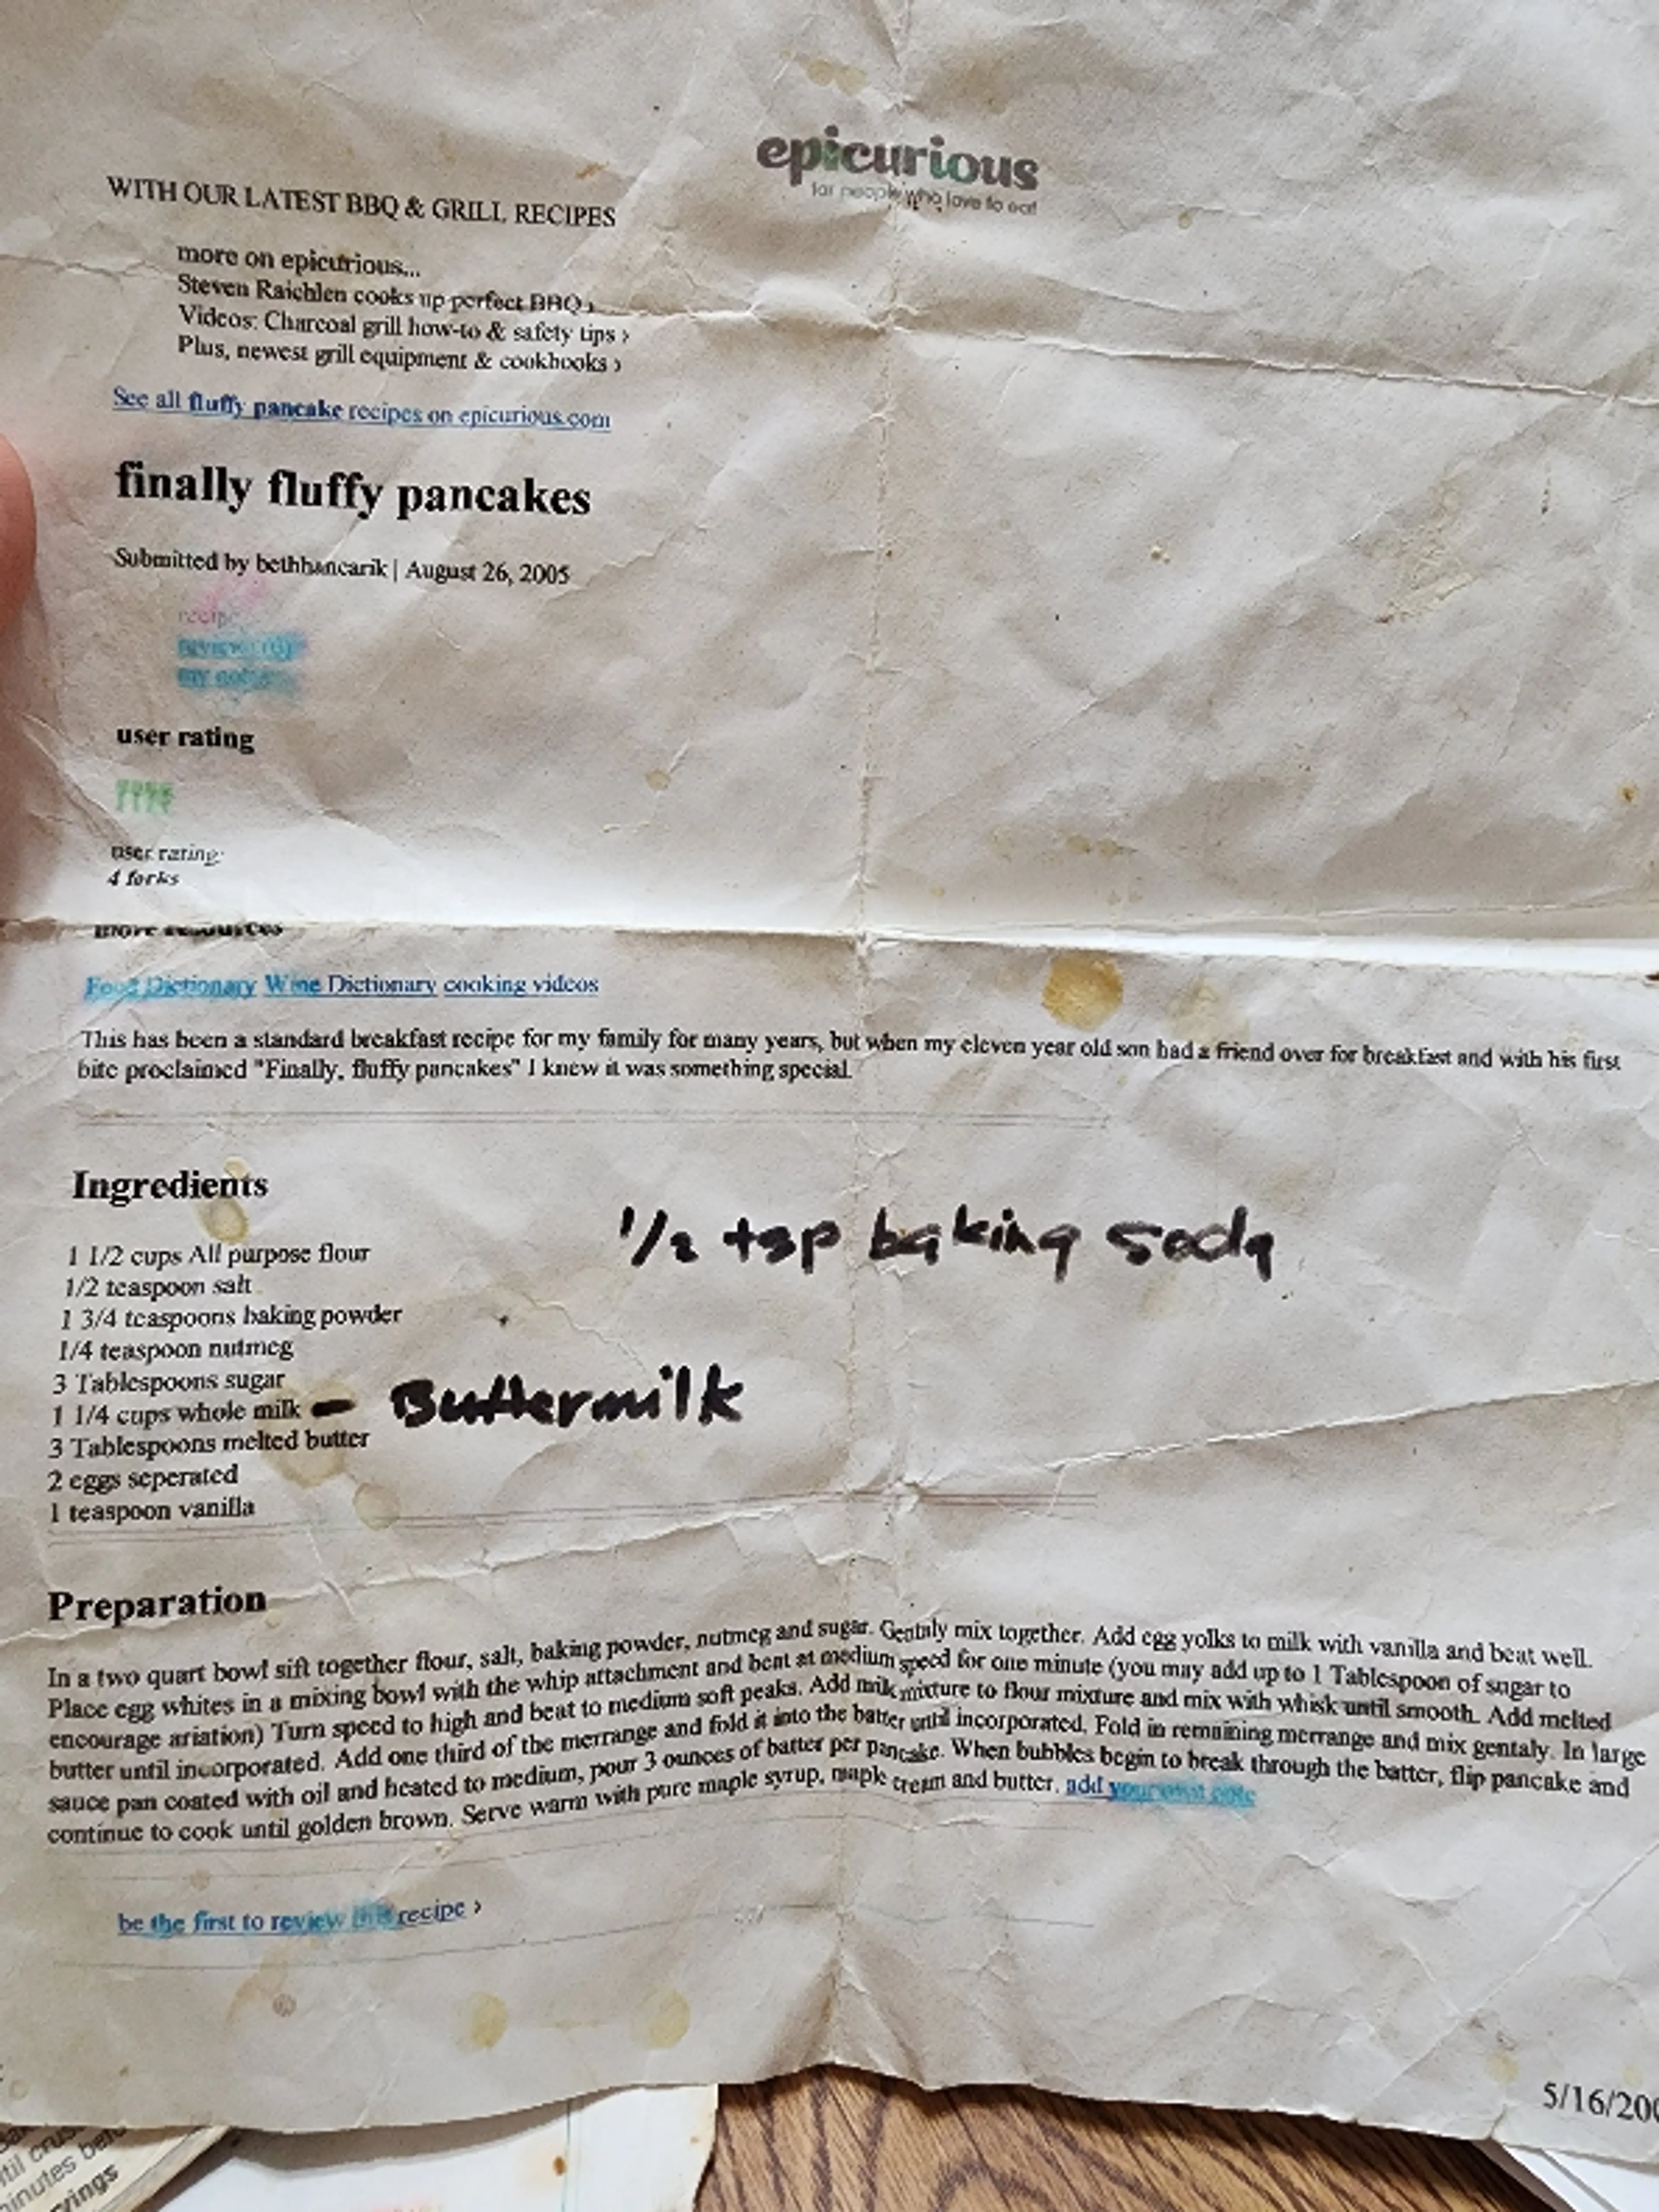 epicurious
for people who love to eat
WITH OUR LATEST BBQ & GRILL RECIPES
more on epicurious...
Steven Raichlen cooks up perfect BBQ ›
Videos: Charcoal grill how-to & safety tips ›
Plus, newest grill equipment & cookbooks ›
See all fluffy pancake recipes on epicurious.com
finally fluffy pancakes
Submitted by bethhancarik | August 26, 2005
recipe
my notes
user rating
user rating:
4 forks
more resources
Food Dictionary Wine Dictionary cooking videos
This has been a standard breakfast recipe for my family for many years, but when my eleven year old son had a friend over for breakfast and with his first
bite proclaimed "Finally, fluffy pancakes" I knew it was something special.
Ingredients
1/2 tsp baking soda
1 1/2 cups All purpose flour
1/2 teaspoon salt
1 3/4 teaspoons baking powder
1/4 teaspoon nutmeg
3 Tablespoons sugar
1 1/4 cups whole milk - Buttermilk
3 Tablespoons melted butter
2 eggs seperated
1 teaspoon vanilla
Preparation
In a two quart bowl sift together flour, salt, baking powder, nutmeg and sugar. Gentaly mix together. Add egg yolks to milk with vanilla and beat well.
Place egg whites in a mixing bowl with the whip attachment and beat at medium speed for one minute (you may add up to 1 Tablespoon of sugar to
encourage ariation) Turn speed to high and beat to medium soft peaks. Add milk mixture to flour mixture and mix with whisk until smooth. Add melted
butter until incorporated. Add one third of the merrange and fold it into the batter until incorporated. Fold in remaining merrange and mix gentaly. In large
sauce pan coated with oil and heated to medium, pour 3 ounces of batter per pancake. When bubbles begin to break through the batter, flip pancake and
continue to cook until golden brown. Serve warm with pure maple syrup, maple cream and butter. add your own note
be the first to review this recipe ›
5/16/200
until crus
minutes befo